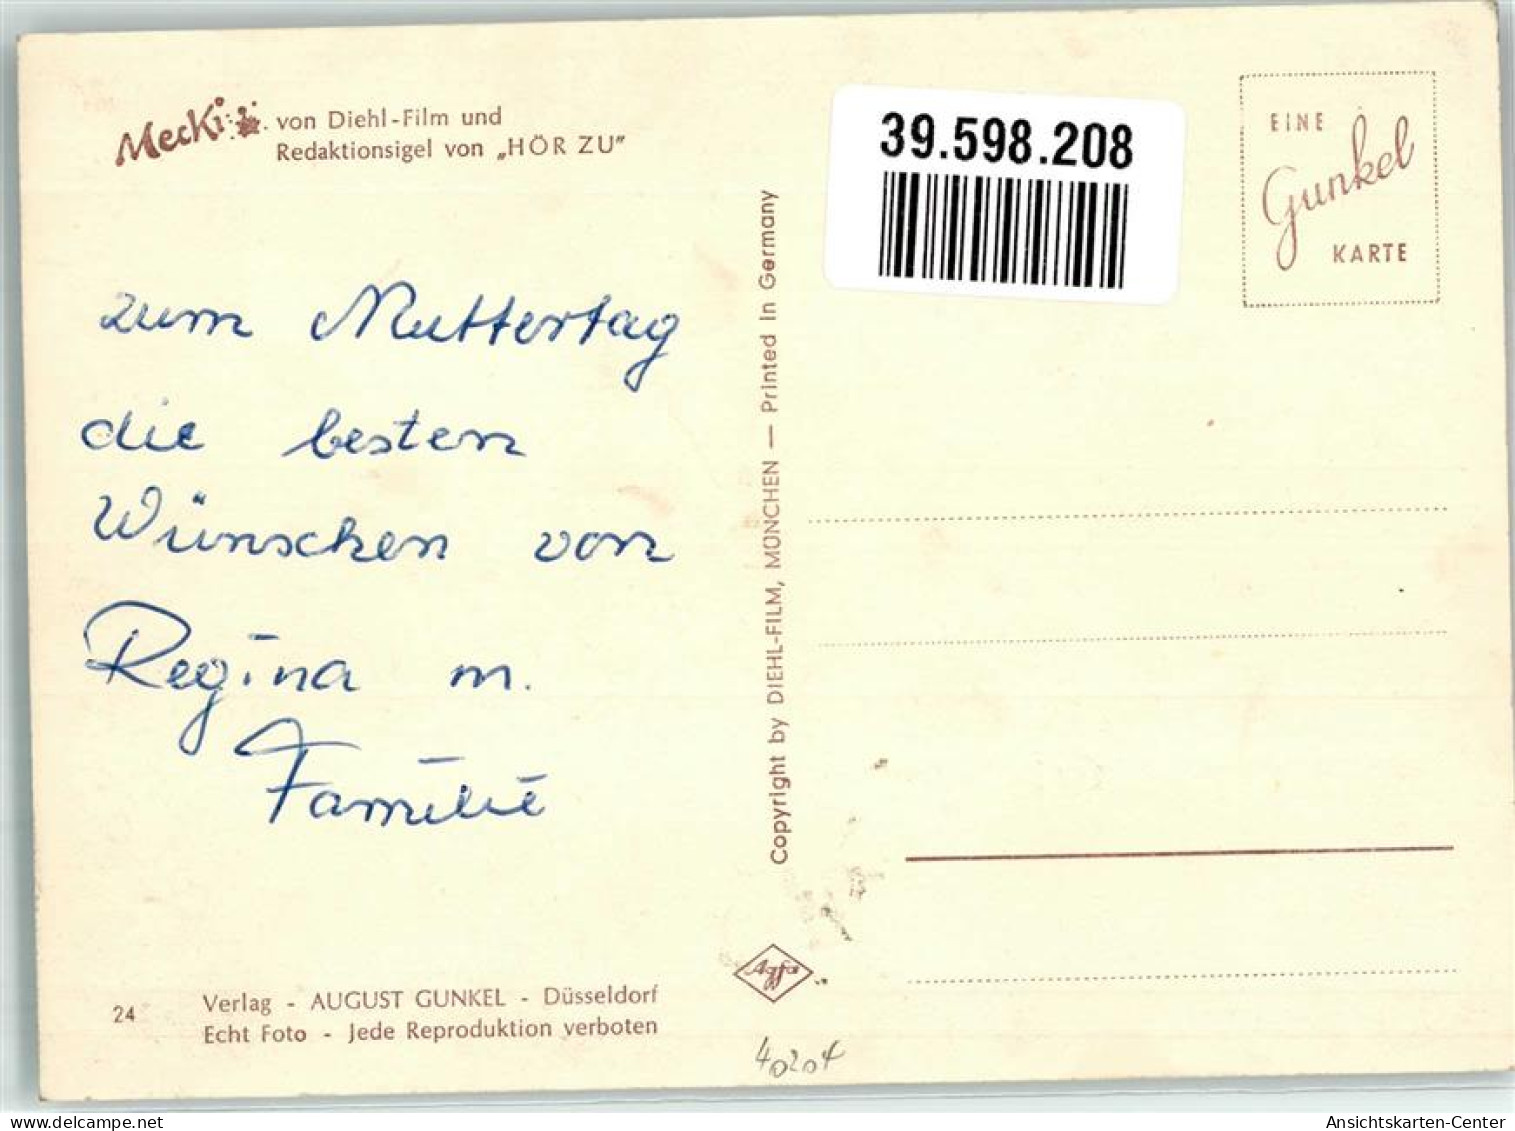 Mecki von Diehl-Film und
Redaktionsigel von „HÖR ZU"
39.598.208
EINE
Gunkel
KARTE
zum Muttertag
die besten
Wünschen von
Regina m.
Familie
Copyright by DIEHL-FILM, MÜNCHEN — Printed In Germany
Agfa
24
Verlag - AUGUST GUNKEL - Düsseldorf
Echt Foto - Jede Reproduktion verboten
40204
oldthing.de
Ansichtskarten-Center